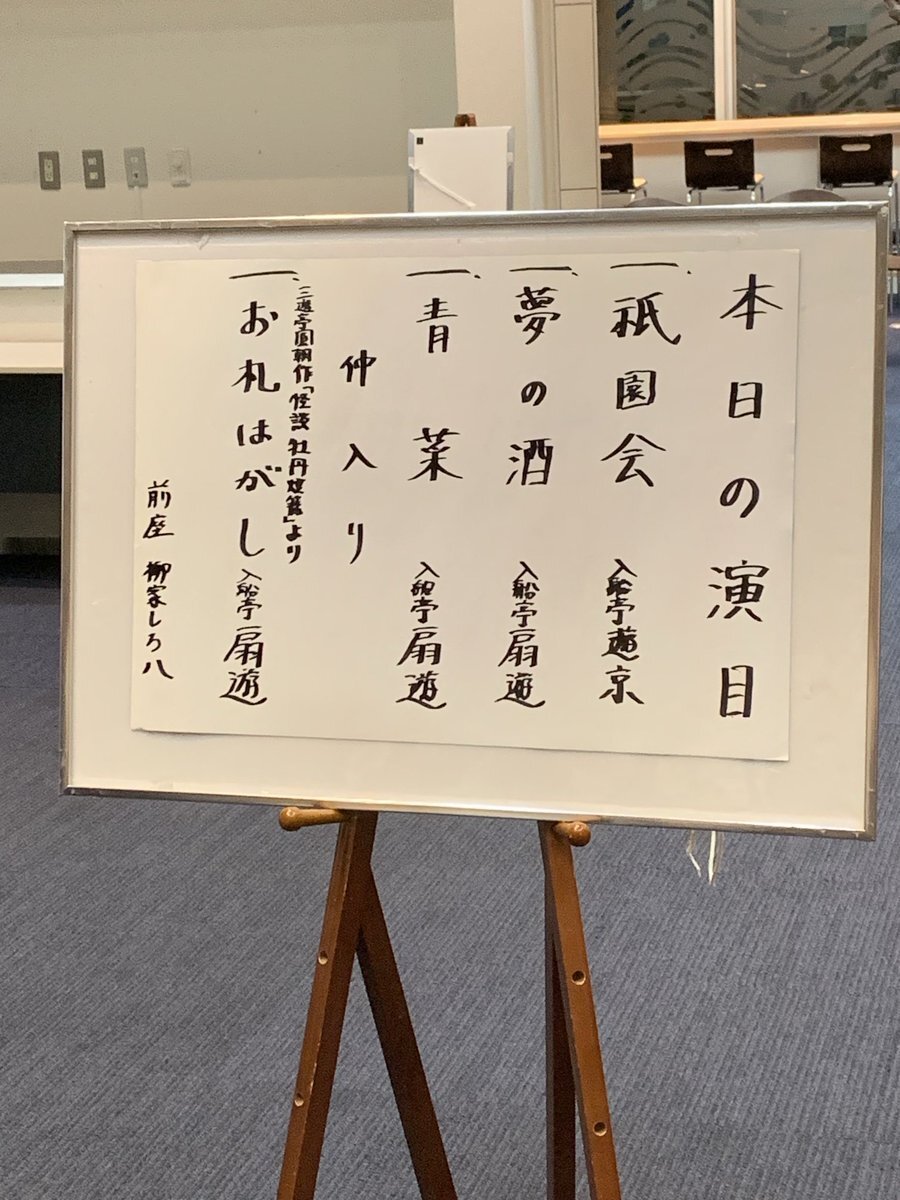 本日の演目
一、祇園会 入船亭遊京
一、夢の酒 入船亭扇遊
一、青菜 入船亭扇遊
仲入り
三遊亭圓朝作「怪談牡丹燈籠」より
一、お札はがし 入船亭扇遊
前座 柳家しろ八